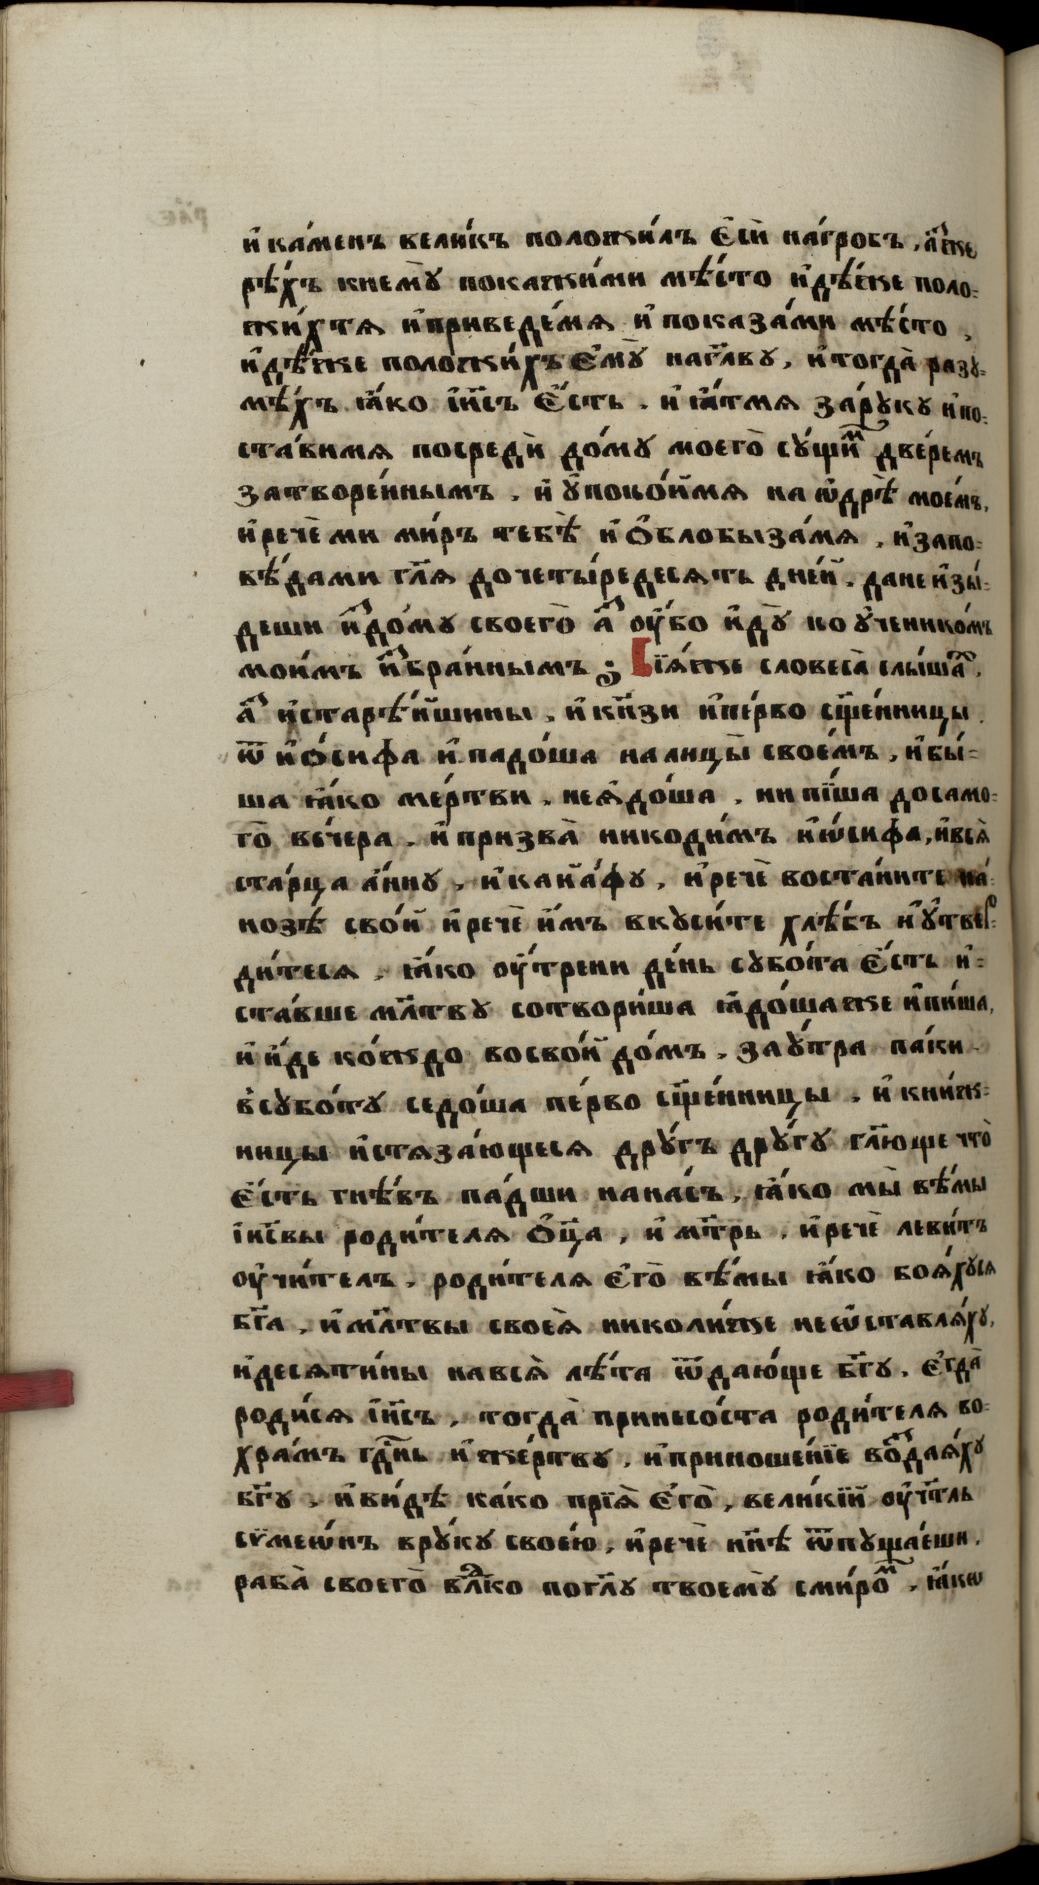 и҆ ка́менъ вели́къ положи́лъ є҆сѝ на́гробъ, а҆́зже
рѣ́хъ кнемꙋ̀ покажи́ми мѣ́сто и҆дѣ́же поло-
жи́хтѧ и҆приведе́мѧ и҆ показа́ми мѣ́сто,
и҆дѣ́же положи́хъ є҆мꙋ̀ нагл҃вꙋ, и҆ тогда̀ разꙋ-
мѣ́хъ ꙗ҆́ко і҆и҃съ є҆́сть. и҆ ꙗ҆́тмѧ за́рꙋкꙋ и҆по-
ста́вимѧ посредѝ до́мꙋ моегѡ̀ сꙋ́щим две́ремъ
затворе́ннымъ. и҆ ᲂу҆поко́ймѧ на ѻ҆дрѣ̀ мое́мъ,
и҆ речѐ ми ми́ръ тебѣ̀ и҆ ѻ҆блобыза́мѧ. и҆запо-
вѣ́дами гл҃ѧ дочеты́редесѧть дне́й. дане и҆зы́-
деши и҆здо́мꙋ своего̀ а҆́з ᲂу҆́бо и҆дꙋ̀ ко ᲂу҆ченико́мъ
мои́мъ и҆збра́ннымъ ; Сїѧ́же словеса̀ слы́шах.
а҆з и҆старѣ́йшины, и҆ кн҃зи и҆пе́рво сщ҃е́нницы.
ѿ и҆ѻ́сифа и҆ падо́ша на лицы̀ свое́мъ, и҆бы́-
ша ꙗ҆́ко ме́ртви, неꙗ҆до́ша, ни пїша досамо-
го̀ ве́чера. и҆ призва̀ никоди́мъ и҆ѡ́сифа, и҆всѧ̀
ста́рца а҆́ннꙋ, и҆ кай҆а́фꙋ, и҆ речѐ воста́ните на́-
нозѣ̀ свои́ и҆ речѐ и҆̀мъ вкꙋси́те хлѣ́бъ и҆ ᲂу҆твер-
ди́тесѧ, ꙗ҆́ко ᲂу҆́трени де́нь сꙋбо́та є҆́сть и҆-
ста́вше мл҃твꙋ сотвори́ша ꙗ҆до́шаже и҆пи́ша,
и҆ и҆́де ко́ждо восво́й до́мъ. заꙋ́тра па́ки
всꙋбо́тꙋ седо́ша пе́рво сщ҃е́нницы, и҆ кни́ж-
ницы и҆стѧза́ющесѧ дрꙋ́гъ дрꙋ́гꙋ гл҃юще что̀
є҆́сть гнѣ́въ па́дши нана́съ, ꙗ҆́ко мы̀ вѣ́мы
і҆и҃свы роди́телѧ ѻ҆ц҃а, и҆ мт҃рь. и҆ речѐ леви́тъ
ᲂу҆чи́телъ, роди́телѧ є҆го̀ вѣ́мы ꙗ҆́ко боѧ́хꙋсѧ
бг҃а, и҆ мл҃твы своеѧ̀ николи́же неѡ҆ставлѧ́хꙋ,
и҆десѧти́ны навсѧ̀ лѣ́та ѿдаю́ще бг҃ꙋ. є҆гда̀
роди́сѧ і҆и҃съ, тогда̀ принесо́ста роди́телѧ во-
хра́мъ гд҃нь и҆ же́ртвꙋ, и҆приноше́нїе воздаѧ́хꙋ
бг҃ꙋ, и҆ ви́дѣ ка́ко прїѧ̀ є҆го̀, вели́кїй ᲂу҆чт҃ль
сѷмеѡ́нъ врꙋ́кꙋ свое́ю, и҆ речѐ нн҃ѣ ѿпꙋща́еши,
раба̀ своего̀ влд҃ко погл҃ꙋ твоемꙋ̀ сми́ром, ꙗ҆́кѡ